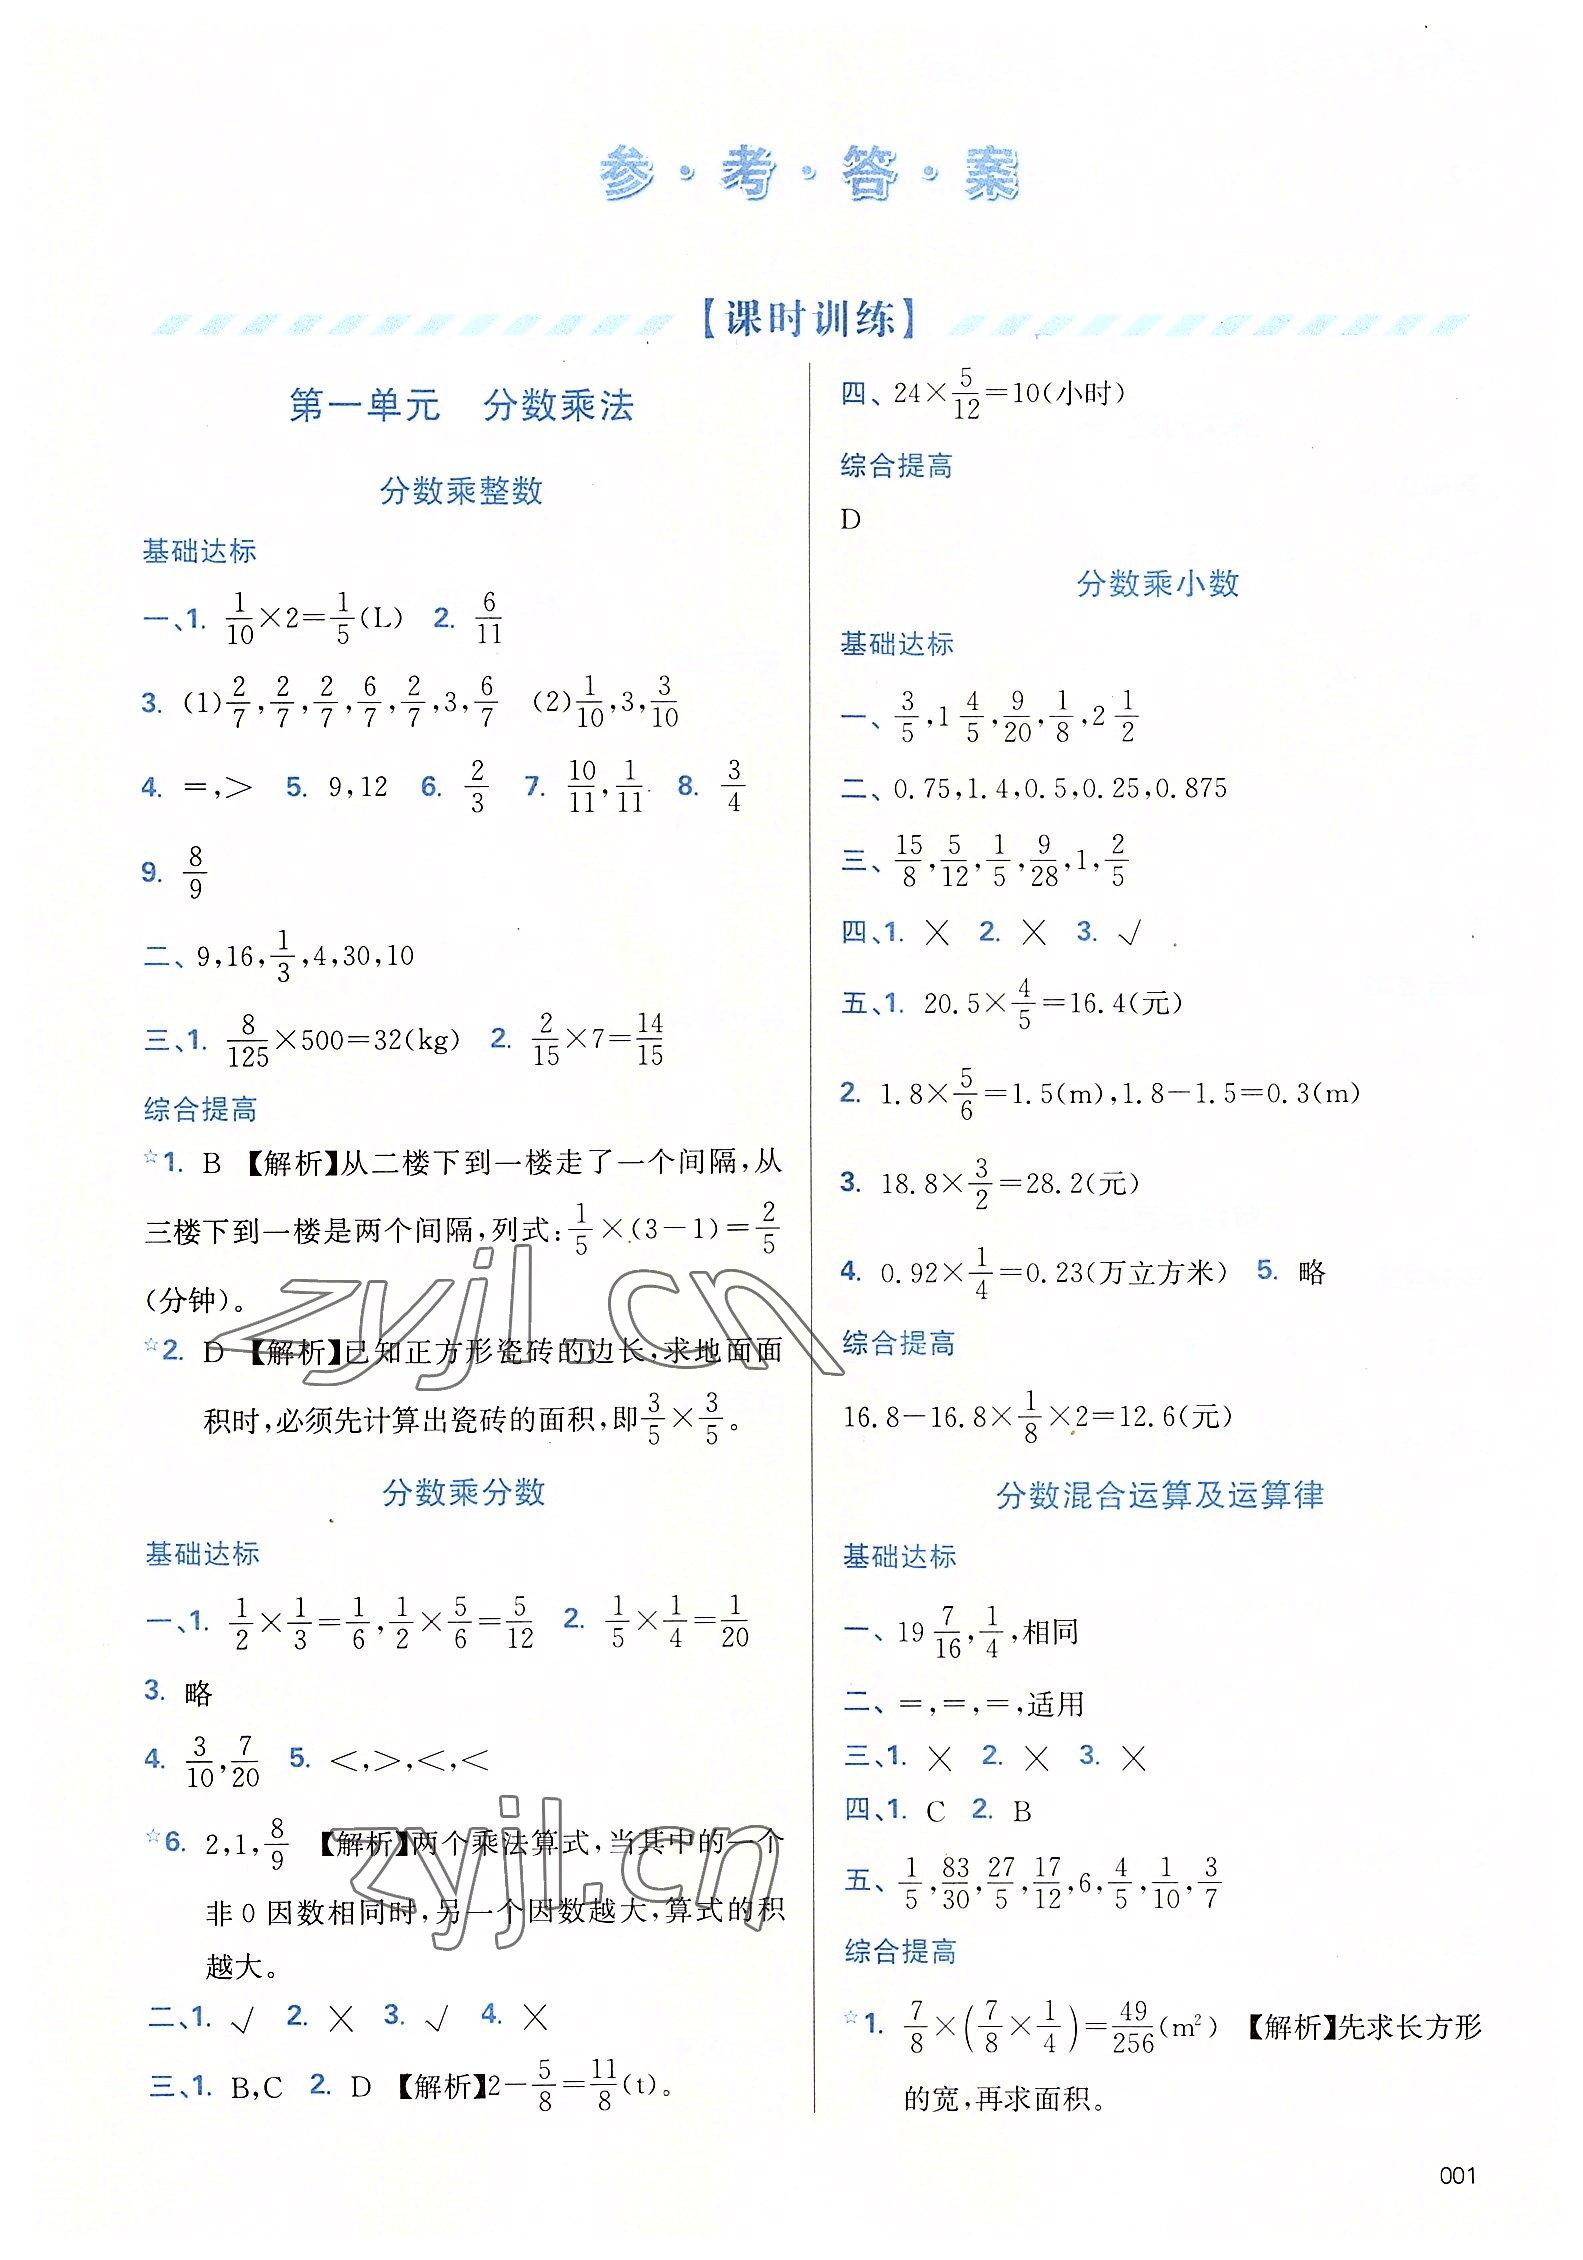 参·考·答·案
【课时训练】
第一单元 分数乘法
分数乘整数
基础达标
一、1. 1/10×2=1/5(L) 2. 6/11
3. (1)2/7,2/7,2/7,6/7,2/7,3,6/7 (2)1/10,3,3/10
4. =,> 5. 9,12 6. 2/3 7. 10/11,1/11 8. 3/4
9. 8/9
二、9,16,1/3,4,30,10
三、1. 8/125×500=32(kg) 2. 2/15×7=14/15
综合提高
☆1. B 【解析】从二楼下到一楼走了一个间隔,从
三楼下到一楼是两个间隔,列式:1/5×(3-1)=2/5
(分钟)。
☆2. D 【解析】已知正方形瓷砖的边长,求地面面
积时,必须先计算出瓷砖的面积,即3/5×3/5。
分数乘分数
基础达标
一、1. 1/2×1/3=1/6,1/2×5/6=5/12 2. 1/5×1/4=1/20
3. 略
4. 3/10,7/20 5. <,>,<,<
☆6. 2,1,8/9 【解析】两个乘法算式,当其中的一个
非0因数相同时,另一个因数越大,算式的积
越大。
二、1. √ 2. × 3. √ 4. ×
三、1. B,C 2. D 【解析】2-5/8=11/8(t)。
四、24×5/12=10(小时)
综合提高
D
分数乘小数
基础达标
一、3/5,1 4/5,9/20,1/8,2 1/2
二、0.75,1.4,0.5,0.25,0.875
三、15/8,5/12,1/5,9/28,1,2/5
四、1. × 2. × 3. √
五、1. 20.5×4/5=16.4(元)
2. 1.8×5/6=1.5(m),1.8-1.5=0.3(m)
3. 18.8×3/2=28.2(元)
4. 0.92×1/4=0.23(万立方米) 5. 略
综合提高
16.8-16.8×1/8×2=12.6(元)
分数混合运算及运算律
基础达标
一、19 7/16,1/4,相同
二、=,=,=,适用
三、1. × 2. × 3. ×
四、1. C 2. B
五、1/5,83/30,27/5,17/12,6,4/5,1/10,3/7
综合提高
☆1. 7/8×(7/8×1/4)=49/256(m²) 【解析】先求长方形
的宽,再求面积。
001
zyjl.cn
zyjl.cn